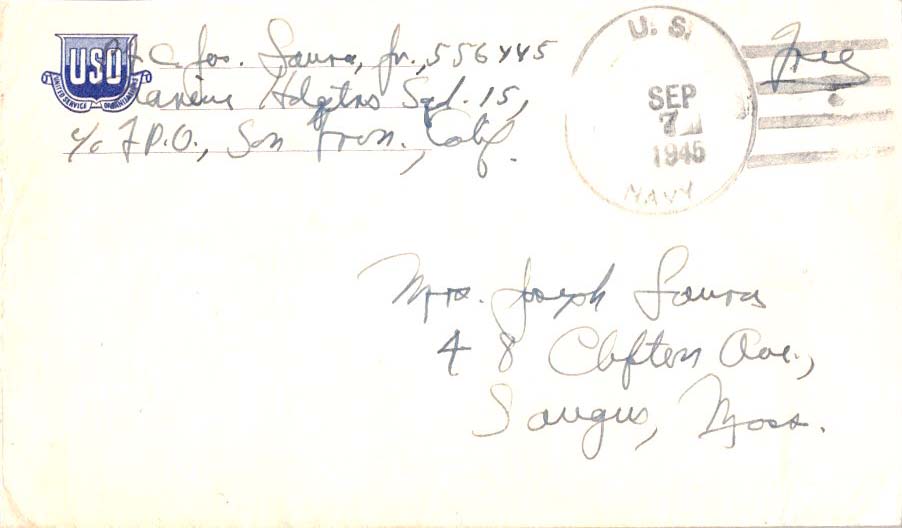 Pfc Jos. Laura, Jr., 556445
Marine Hdqtrs Sqd. 15,
c/o F.P.O., San Fran., Calif.
USO
UNITED SERVICE ORGANIZATIONS
U. S.
SEP
7
1945
NAVY
Free
Mrs. Joseph Laura
48 Clifton Ave.,
Saugus, Mass.